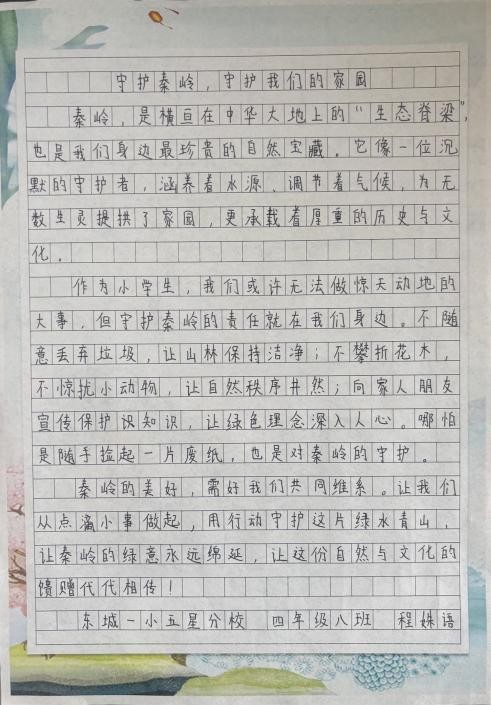 守护秦岭，守护我们的家园
秦岭，是横亘在中华大地上的“生态脊梁”，
也是我们身边最珍贵的自然宝藏。它像一位沉
默的守护者，涵养着水源、调节着气候，为无
数生灵提拱了家园，更承载着厚重的历史与文
化。
作为小学生，我们或许无法做惊天动地的
大事，但守护秦岭的责任就在我们身边。不随
意丢弃垃圾，让山林保持洁净；不攀折花木，
不惊扰小动物，让自然秩序井然；向家人朋友
宣传保护识知识，让绿色理念深入人心。哪怕
是随手捡起一片废纸，也是对秦岭的守护。
秦岭的美好，需好我们共同维系。让我们
从点滴小事做起，用行动守护这片绿水青山，
让秦岭的绿意永远绵延，让这份自然与文化的
馈赠代代相传！
东城一小五星分校 四年级八班 程姝语